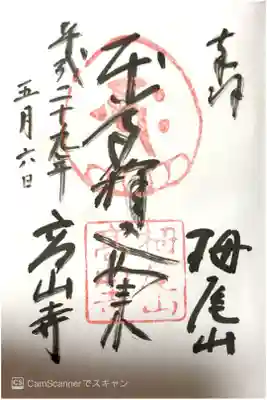 奉拝
栂尾山
本尊釋迦如来
栂尾山
高山寺
平成二十九年
五月六日
高山寺
CS CamScannerでスキャン